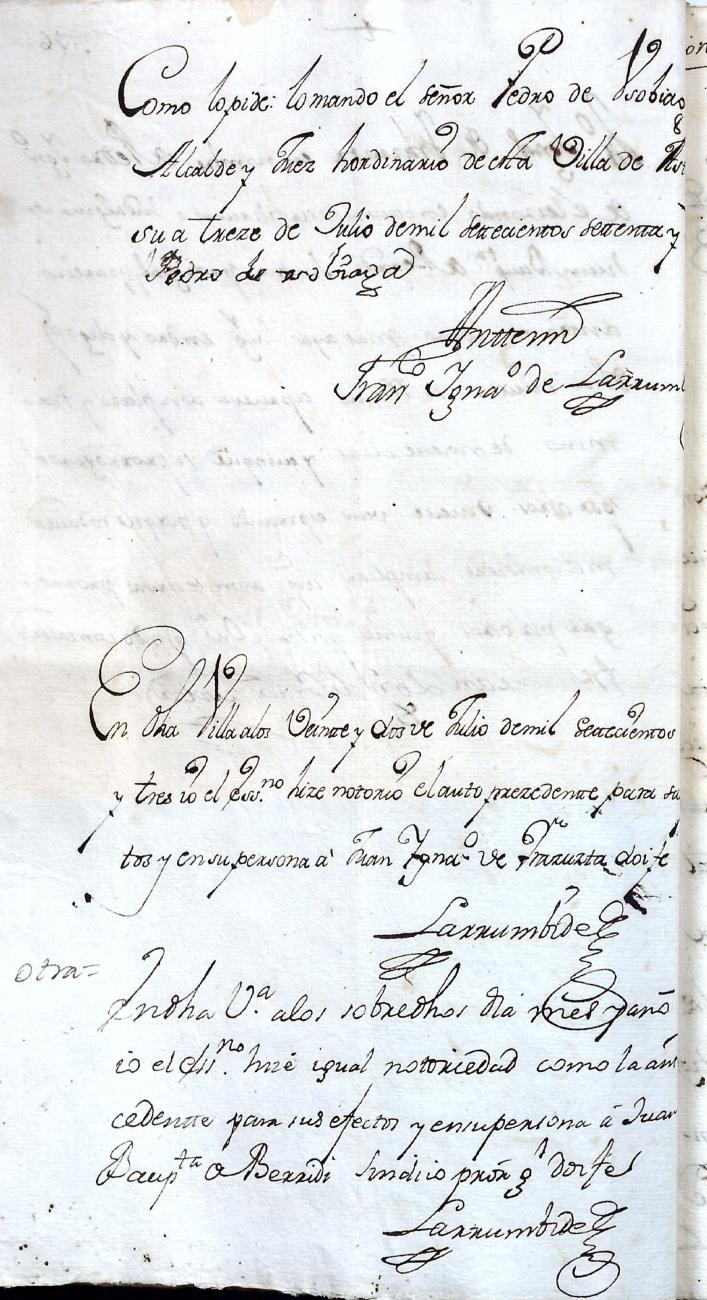 Como lo pide: lo mando el señor Pedro de Vsobiaga
Alcalde y Juez hordinario de esta Villa de
su a treze de Julio de mil settecientos settenta y
Pedro de vsobiaga
Antemi
Fran.co Ygna.o de Larrum
En dha Villa a los Veinte y dos de Julio de mil settecientos
y tres io el Ess.no hize notorio el auto prezedentte, para su
tos y en su persona à Juan Ygna.o de doi fe
Larrumbide
Otra=
En dha V.a a los sobredhos dia mes y año
io el Ess.no hize igual notoriedad como la an
cedentte para sus efectos y en su persona â Juan
Baup.ta Berridi Sindico prōr g.l doi fe
Larrumbide